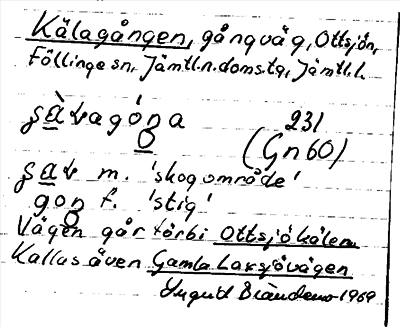 Kälagången, gångväg, Ottsjön,
Föllinge sn, Jämtl.n.doms.tg, Jämtl.l.
231
(Gn 60)
m. 'skogområde'
f. 'stig'
Vägen går förbi Ottsjökälen
Kallas även Gamla Laksjövägen
Ingrid 1969